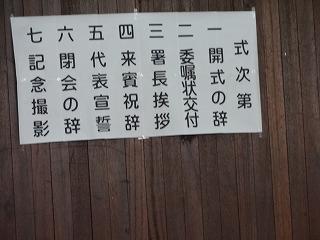 式次第
一 開式の辞
二 委嘱状交付
三 署長挨拶
四 来賓祝辞
五 代表宣誓
六 閉会の辞
七 記念撮影